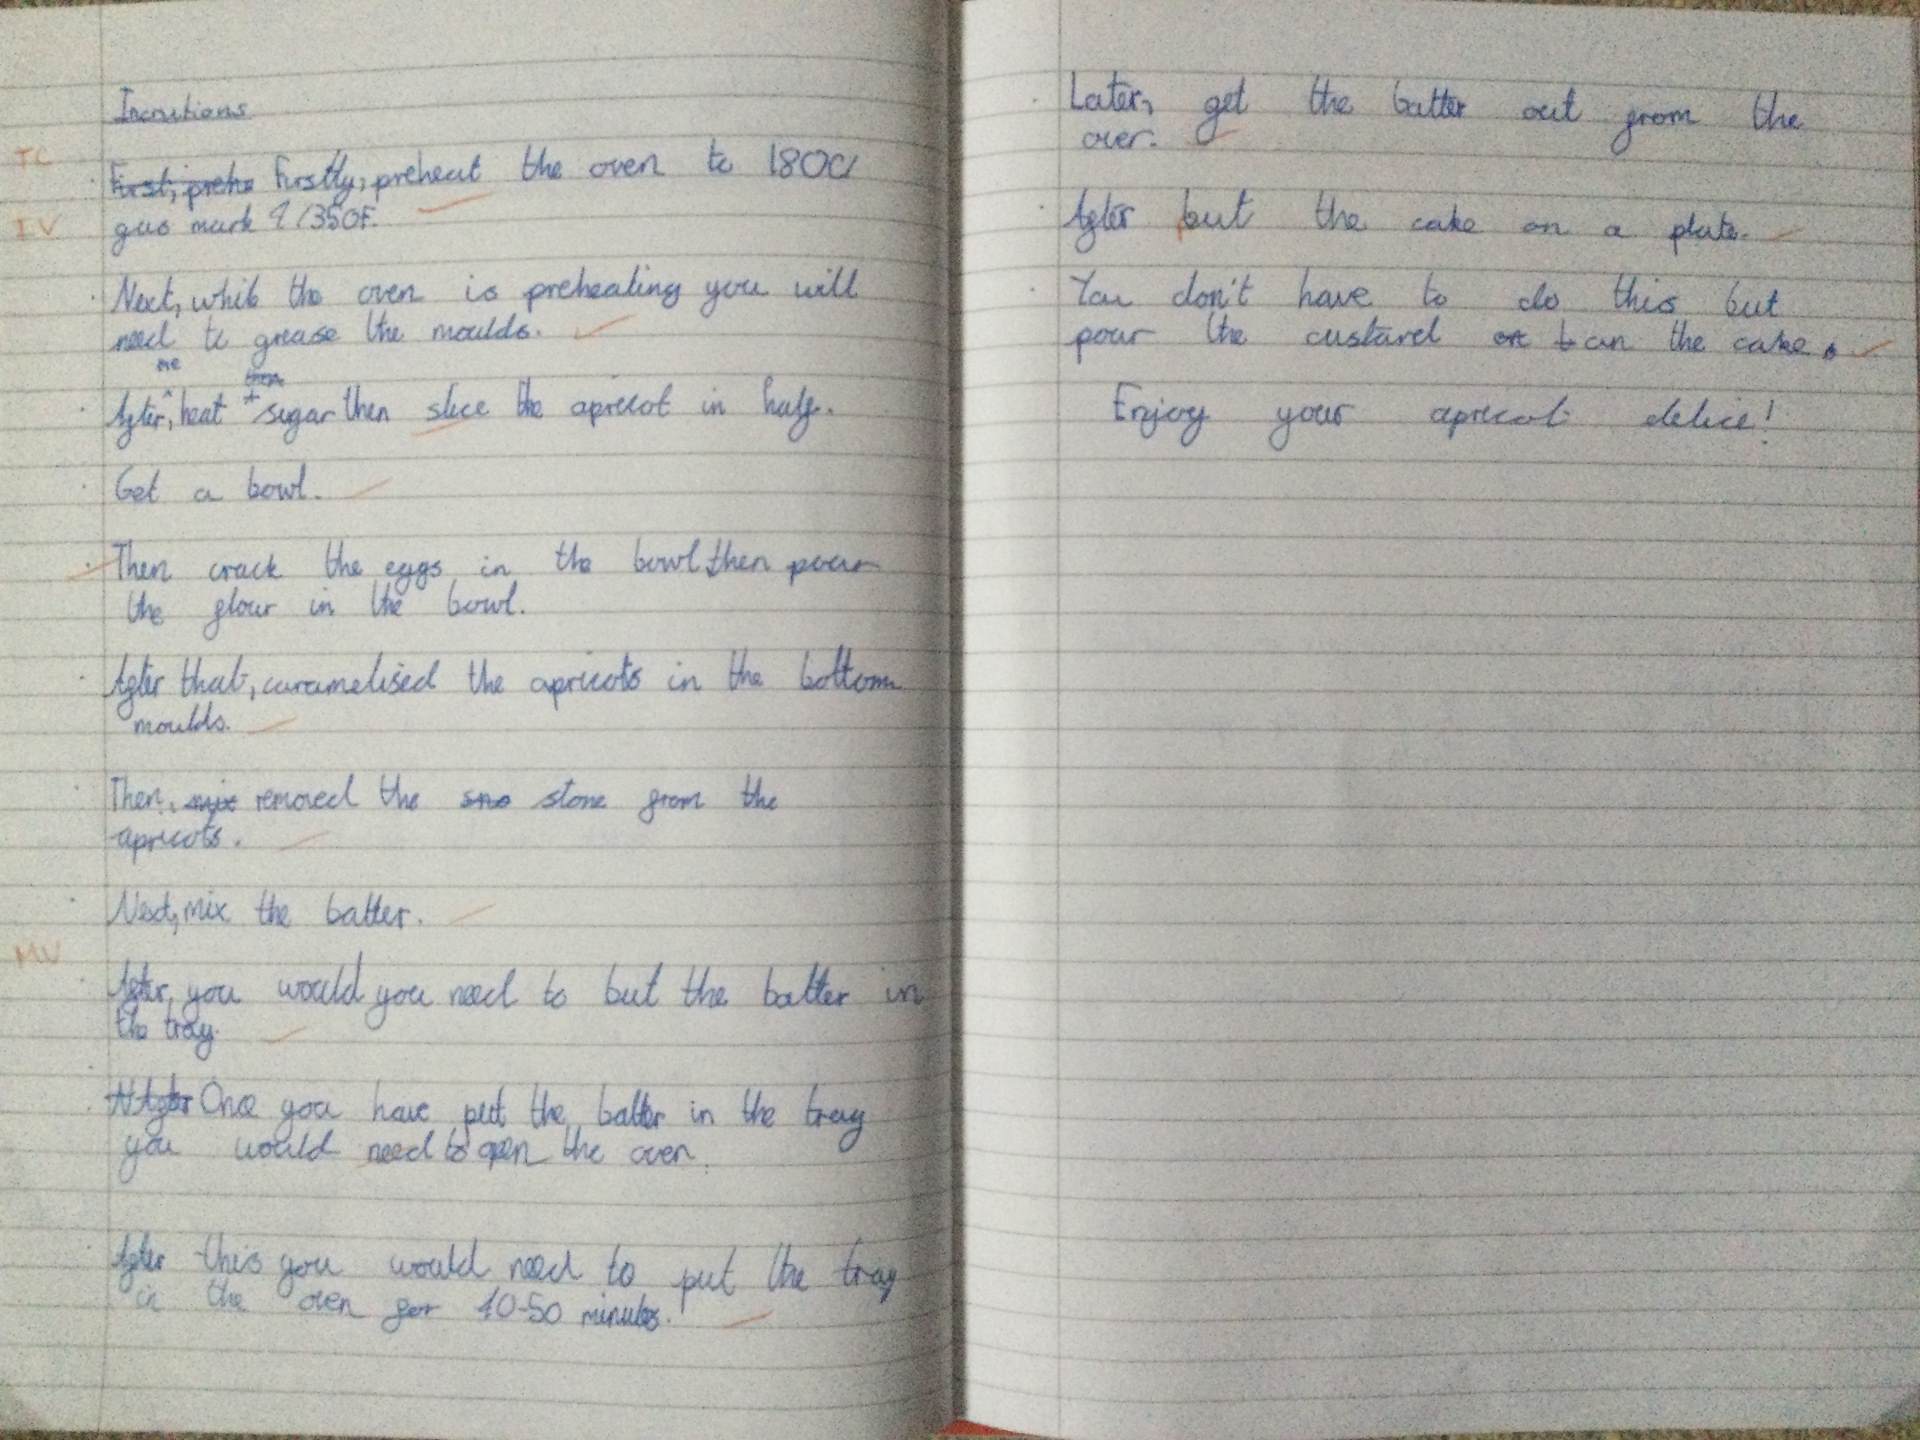 Incrutions
TC
First, prehe Firstly, preheat the oven to 180C/
IV
gas mark 4/350F.
Next, while the oven is preheating you will
need to grease the moulds.
then
After, heat + sugar then slice the apricot in half.
Get a bowl.
Then crack the eggs in the bowl then pour
the flour in the bowl.
After that, caramelised the apricots in the bottom
moulds.
Then, mix removed the sno stone from the
apricots.
Next, mix the batter.
MV
After, you would you need to but the batter in
the tray.
After Once you have put the batter in the tray
you would need to open the oven.
After this you would need to put the tray
in the oven for 40-50 minutes.
Later, get the batter out from the
oven.
After but the cake on a plate.
You don't have to do this but
pour the custard on the cake.
Enjoy your apricot delice!